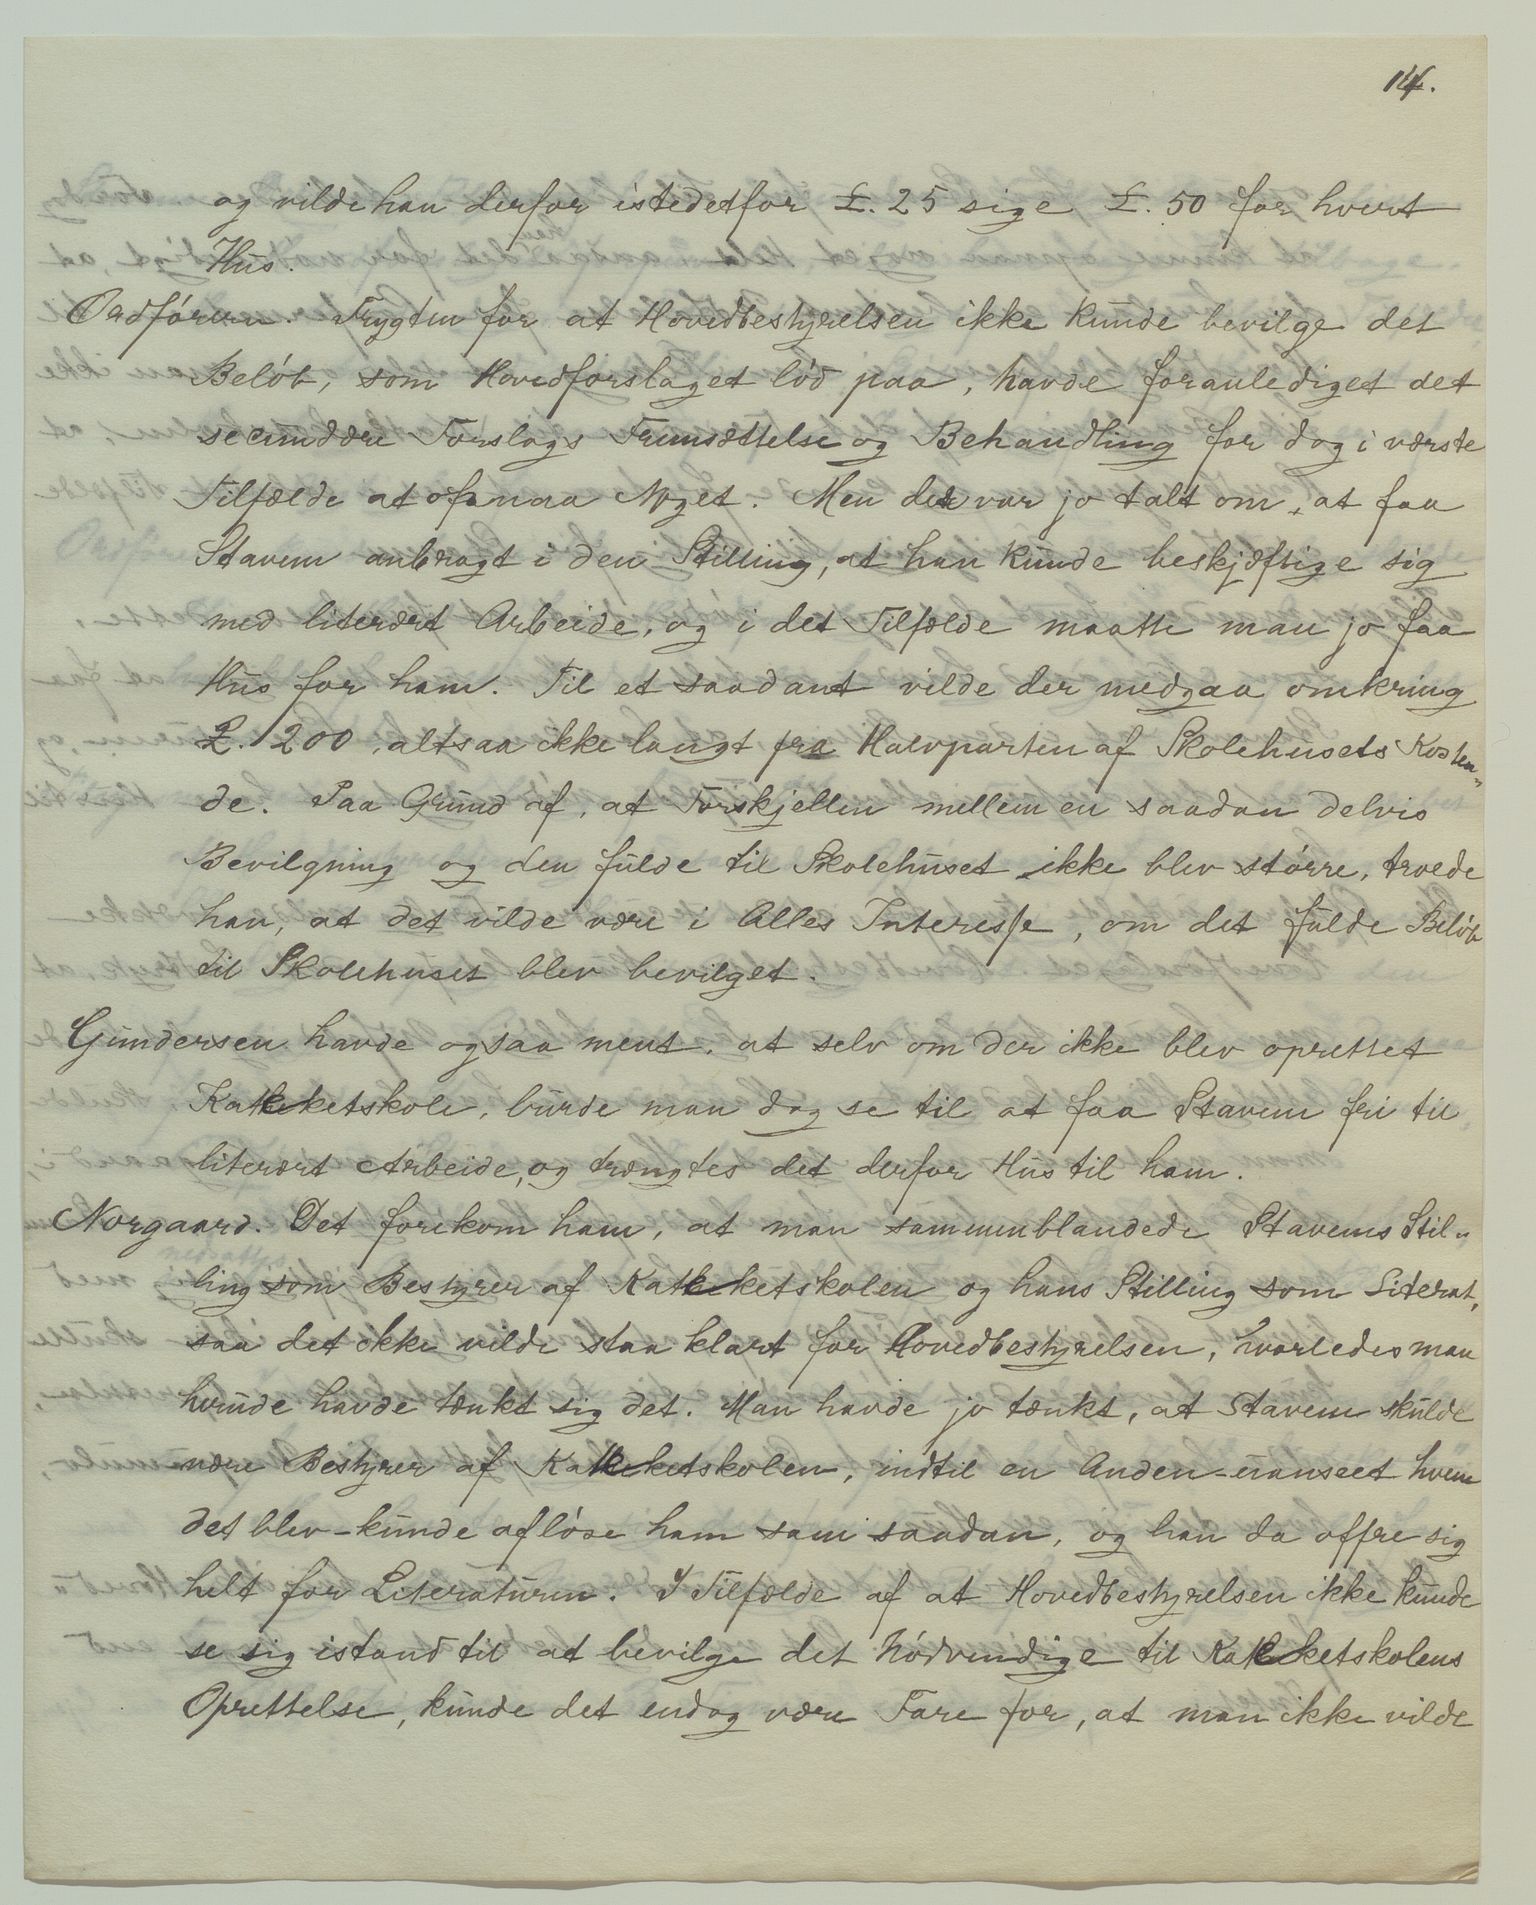 14.
og vilde han derfor istedetfor £. 25 sige £. 50 for hvert
Hus.
Ordføreren. Frygten for at Hovedbestyrelsen ikke kunde bevilge det
Beløb, som Hovedforslaget lød paa, havde foranlediget det
secundære Forslags Fremsættelse og Behandling for dog i værste
Tilfælde at opnaa Noget. Men det var jo talt om, at faa
Stavem anbragt i den Stilling, at han kunde beskjæftige sig
med literært Arbeide, og i det Tilfælde maatte man jo faa
Hus for ham. Til et saadant vilde der medgaa omkring
£. 200, altsaa ikke langt fra Halvparten af Skolehusets Kosten-
de. Paa Grund af, at Forskjellen mellem en saadan delvis
Bevilgning og den fulde til Skolehuset ikke blev større, troede
han, at det vilde være i Alles Interesse, om det fulde Beløb
til Skolehuset blev bevilget.
Gundersen havde ogsaa ment, at selv om der ikke blev oprettet
Kateketskole, burde man dog se til at faa Stavem fri til
literært Arbeide, og trængtes det derfor Hus til ham.
Norgaard. Det forekom ham, at man sammenblandede Stavems Stil-
ling som Bestyrer af Kateketskolen og hans Stilling som Literat,
saa det ikke vilde staa klart for Hovedbestyrelsen, hvorledes man
hernede havde tænkt sig det. Man havde jo tænkt, at Stavem skulde
være Bestyrer af Kateketskolen, indtil en Anden - uanseet hvem
det blev - kunde afløse ham som saadan, og han da offre sig
helt for Literaturen. I Tilfælde af at Hovedbestyrelsen ikke kunde
se sig istand til at bevilge det Nødvendige til Kateketskolens
Oprettelse, kunde det endog være Fare for, at man ikke vilde